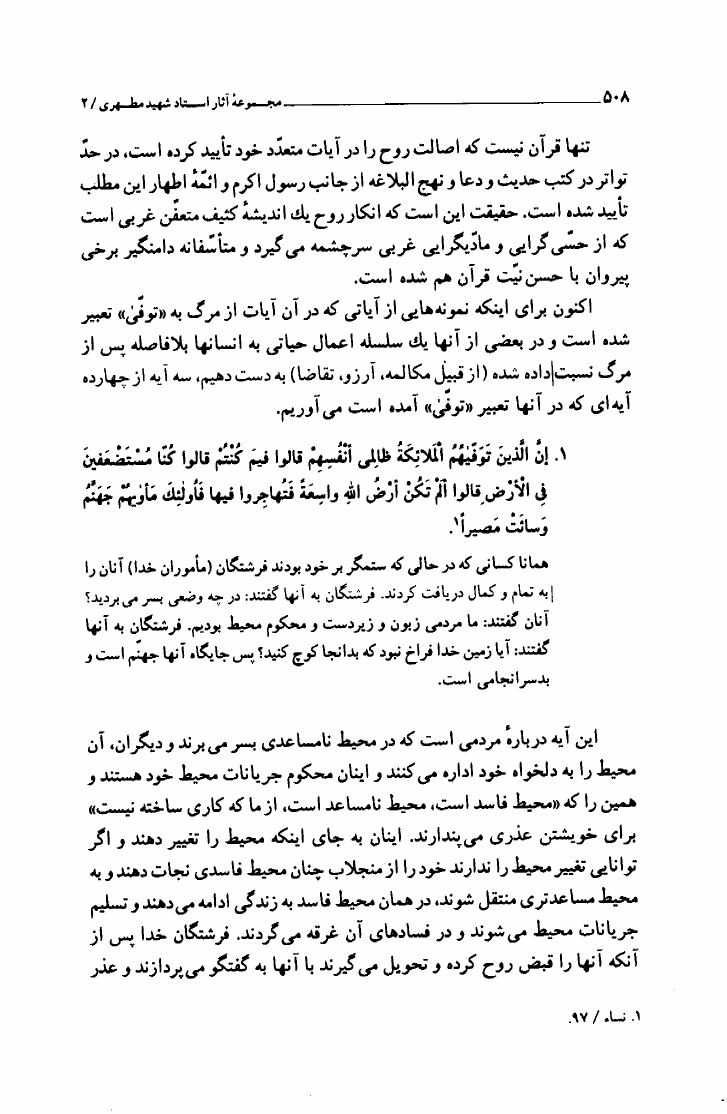 ۵۰۸ مجموعهٔ آثار استاد شهید مطهری / ۲
تنها قرآن نیست که اصالت روح را در آیات متعدّد خود تأیید کرده است، در حدّ
تواتر در کتب حدیث و دعا و نهج البلاغه از جانب رسول اکرم و ائمّهٔ اطهار این مطلب
تأیید شده است. حقیقت این است که انکار روح یك اندیشهٔ کثیف متعفّن غربی است
که از حسّی گرایی و مادّیگرایی غربی سرچشمه می گیرد و متأسّفانه دامنگیر برخی
پیروان با حسن نیّت قرآن هم شده است.
اکنون برای اینکه نمونه هایی از آیاتی که در آن آیات از مرگ به «توفّیٰ» تعبیر
شده است و در بعضی از آنها یك سلسله اعمال حیاتی به انسانها بلافاصله پس از
مرگ نسبت داده شده (از قبیل مکالمه، آرزو، تقاضا) به دست دهیم، سه آیه از چهارده
آیه ای که در آنها تعبیر «توفّیٰ» آمده است می آوریم.
۱. إنَّ الَّذینَ تَوَفّیٰهُمُ الْمَلائِکَةُ ظالِمی أنْفُسِهِمْ قالوا فیمَ کُنْتُمْ قالوا کُنّا مُسْتَضْعَفینَ
فِی الْأرْضِ قالوا ألَمْ تَکُنْ أرْضُ اللّهِ واسِعَةً فَتُهاجِروا فیها فَأولٰئِكَ مَأویٰهُمْ جَهَنَّمُ
وَسائَتْ مَصیراً۱.
همانا کسانی که در حالی که ستمگر بر خود بودند فرشتگان (مأموران خدا) آنان را
به تمام و کمال دریافت کردند. فرشتگان به آنها گفتند: در چه وضعی بسر می بردید؟
آنان گفتند: ما مردمی زبون و زیردست و محکوم محیط بودیم. فرشتگان به آنها
گفتند: آیا زمین خدا فراخ نبود که بدانجا کوچ کنید؟ پس جایگاه آنها جهنّم است و
بدسرانجامی است.
این آیه دربارهٔ مردمی است که در محیط نامساعدی بسر می برند و دیگران، آن
محیط را به دلخواه خود اداره می کنند و اینان محکوم جریانات محیط خود هستند و
همین را که «محیط فاسد است، محیط نامساعد است، از ما که کاری ساخته نیست»
برای خویشتن عذری می پندارند. اینان به جای اینکه محیط را تغییر دهند و اگر
توانایی تغییر محیط را ندارند خود را از منجلاب چنان محیط فاسدی نجات دهند و به
محیط مساعدتری منتقل شوند، در همان محیط فاسد به زندگی ادامه می دهند و تسلیم
جریانات محیط می شوند و در فسادهای آن غرقه می گردند. فرشتگان خدا پس از
آنکه آنها را قبض روح کرده و تحویل می گیرند با آنها به گفتگو می پردازند و عذر
۱. نساء / ۹۷.